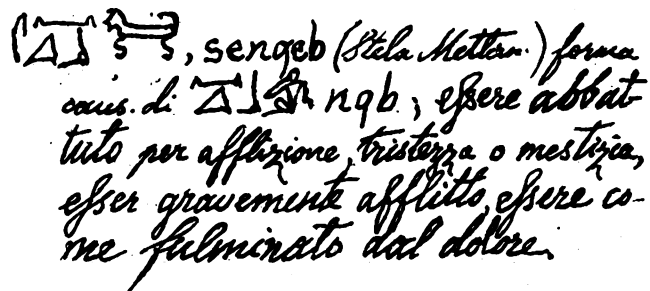 , sengeb (Stela Mettern.) forma
caus. di nqb; eßere abbat-
tuto per afflizione, tristezza o mestizia,
eßer gravemente afflitto, eßere co-
me fulminato dal dolore.